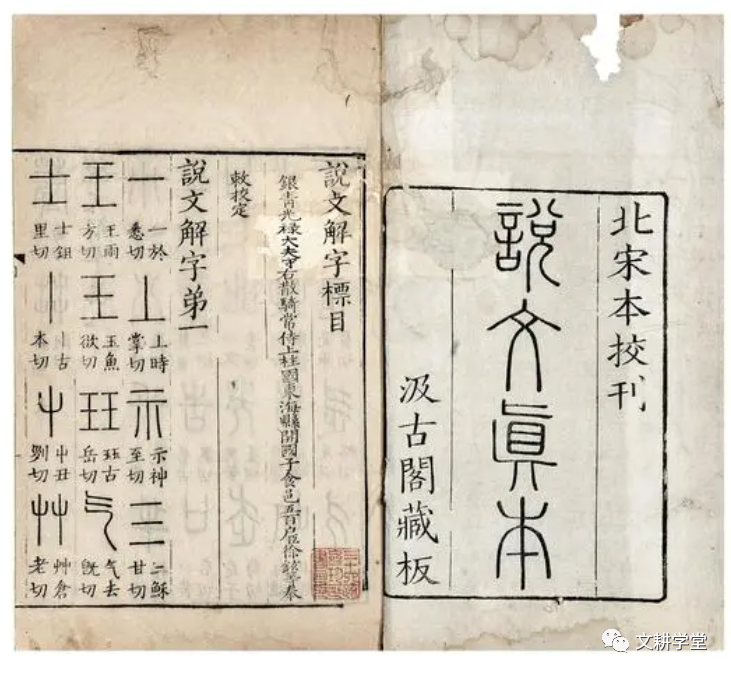 北宋本挍刊
說文眞本
汲古閣藏板
說文解字標目
銀青光禄大夫守右散騎常侍上柱國東海縣開國子食邑五百户臣徐鉉等奉
敕挍定
說文解字弟一
一 一於悉切 丄 上時掌切 示 示神至切 三 三穌甘切
王 王雨方切 王 玉魚欲切 玨 玨古岳切 气 气去旣切
士 士鉏里切 丨 丨古本切 屮 屮丑劉切 艸 艸倉老切
文耕学堂